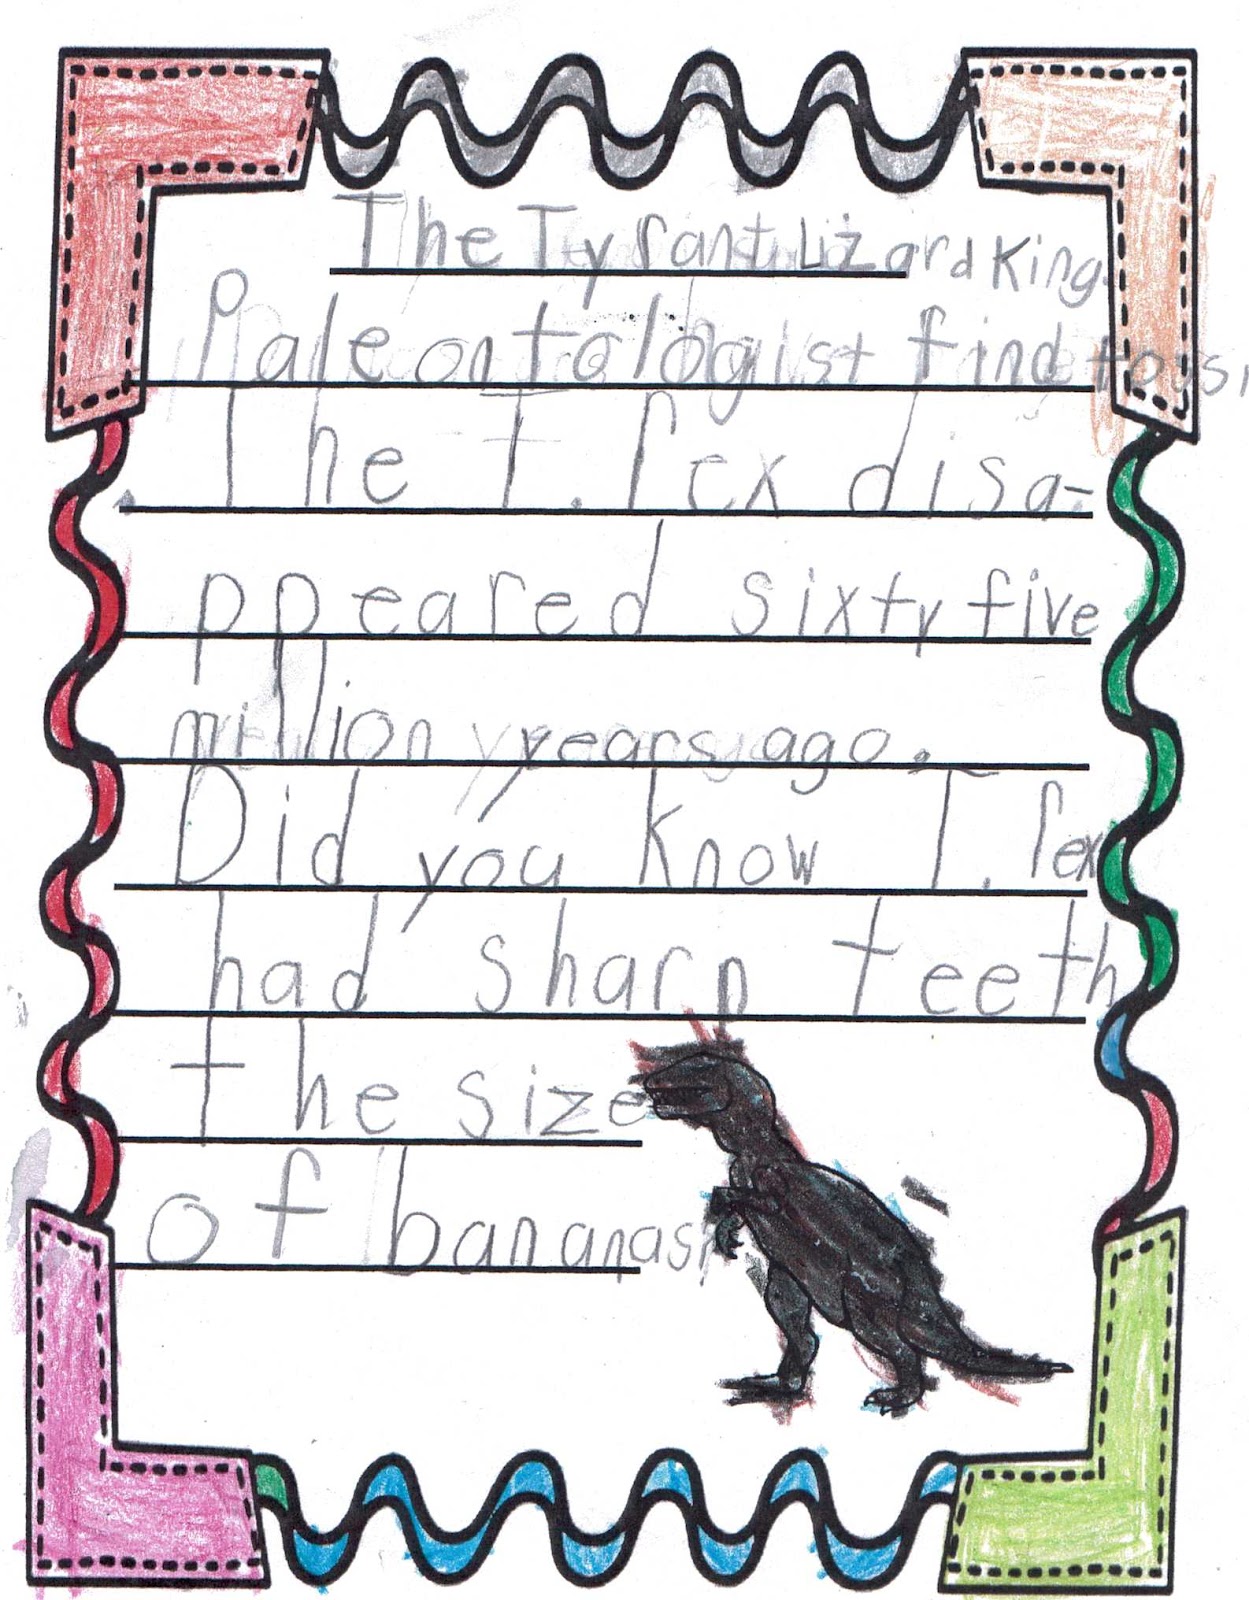 The Tyrant Lizard King.
Paleontologist find
. The T. rex disa-
ppeared sixty five
million years ago.
Did you know T. rex
had sharp teeth
the size
of bananas!